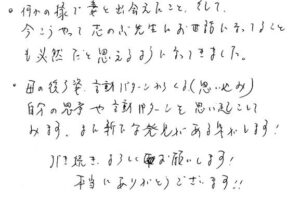 。何かの様で妻と出会えたこと、そして、
今こうやって 先生にお世話になってること
も必然だと思えるようになってきました。
。母の後ろ姿、言動パターンからくる(思いぐせ)
自分の思考や言動パターンを思い起こして
みます。また新たな発見がある気がします!
引き続き、よろしくお願いします!
本当にありがとうございます!!